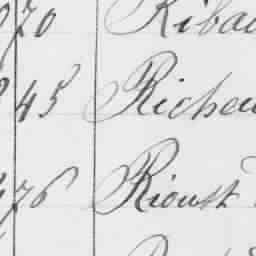 70 Ribau
45 Richeu
76 Rioust